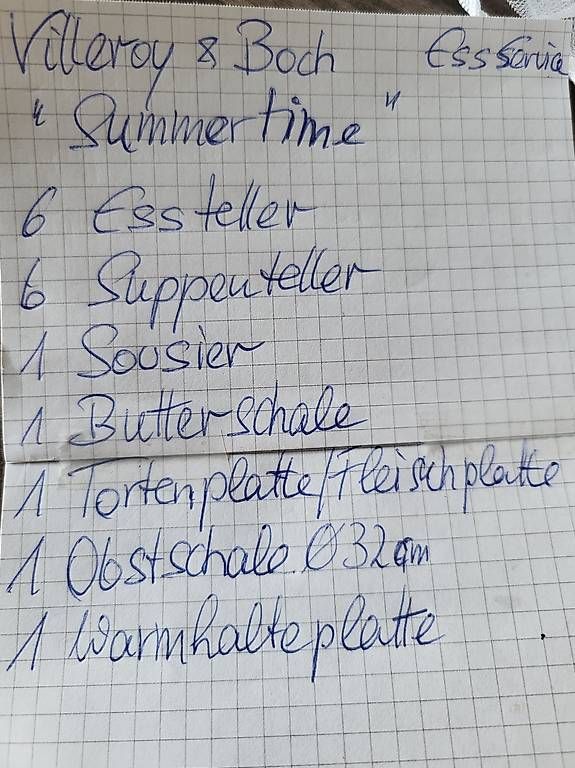 Villeroy & Boch Essservice
"Summertime"
6 Essteller
6 Suppenteller
1 Sousier
1 Butterschale
1 Tortenplatte/Fleischplatte
1 Obstschale Ø 32 cm
1 Warmhalteplatte